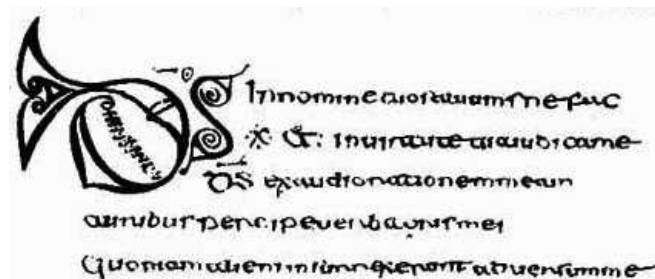 DS In nomine tuo saluum me fac
※ et: in uirtute tua iudica me
DS exaudi orationem meam
auribus percipe uerba oris mei
Quoniam alieni insurrexerunt aduersum me